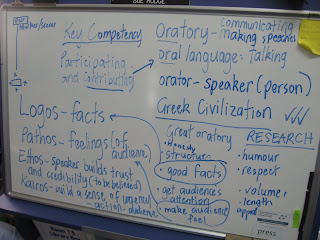 SUE HODGE
Key Competency
Participating
and Contributing
Oratory - communicating
making speeches
oral language - Talking
orator - speaker (person)
Greek Civilization
Logos - facts
Pathos - feelings (of
audience)
Ethos - speaker builds trust
and credibility (to be believed)
Kairos - build a sense of urgency
- action - audience
Great oratory
• Honesty
• structure
• good facts
• get audiences
attention
• make audience
feel
RESEARCH
• humour
• respect
• volume
• length
press